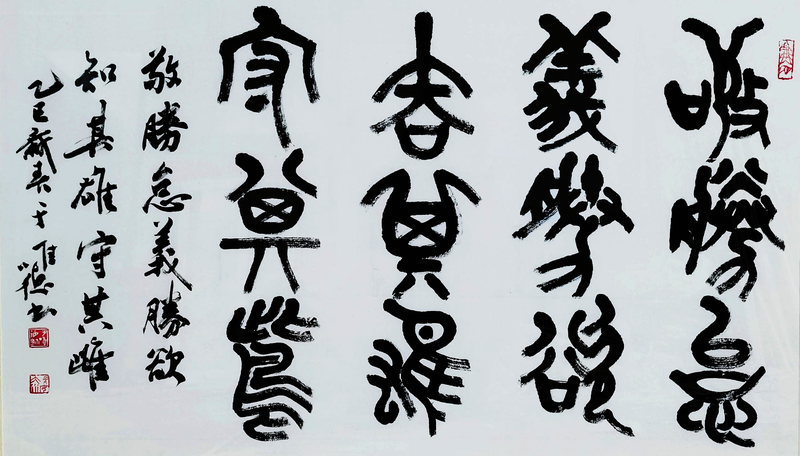 敬勝怠
義勝欲
知其雄
守其雌
敬勝怠義勝欲
知其雄守其雌
乙巳新春于